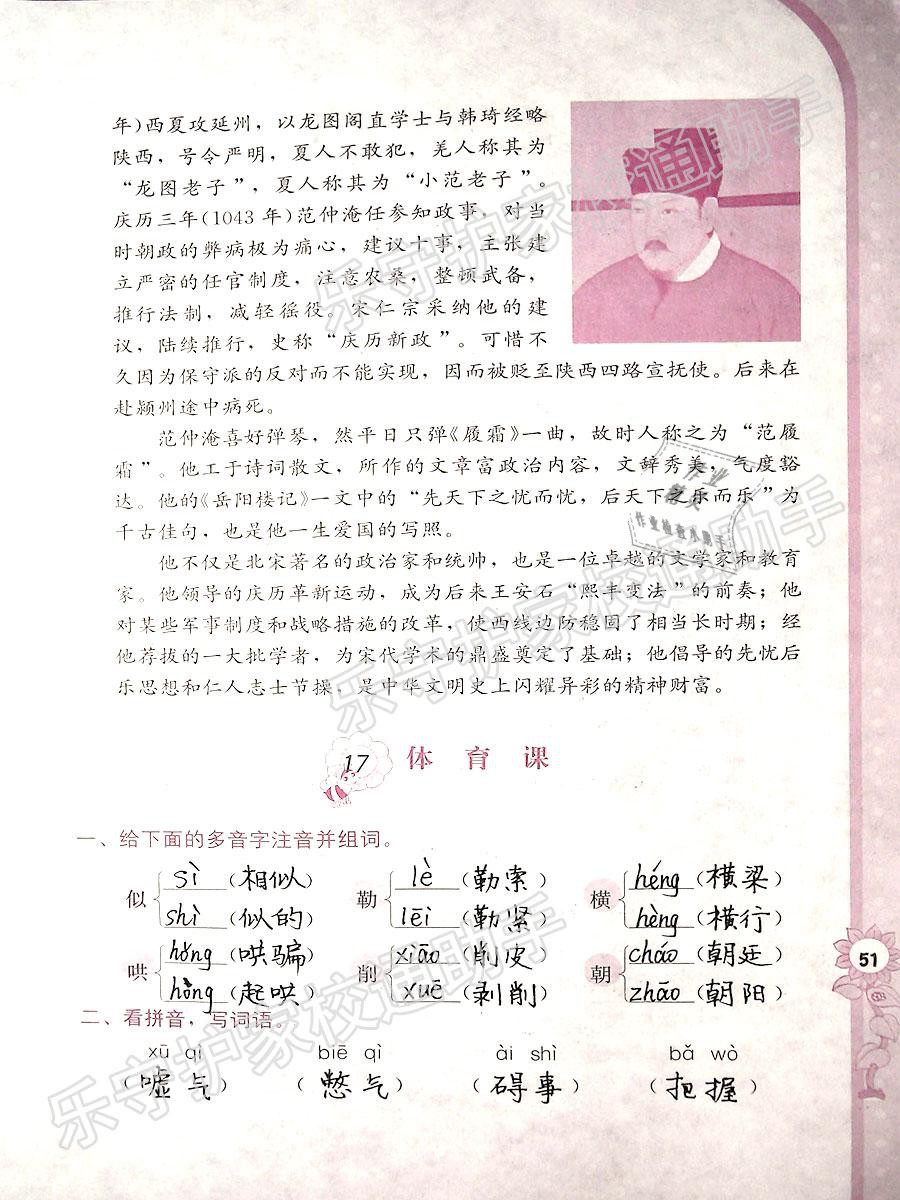 年)西夏攻延州，以龙图阁直学士与韩琦经略
陕西，号令严明，夏人不敢犯，羌人称其为
“龙图老子”，夏人称其为“小范老子”。
庆历三年(1043年)范仲淹任参知政事，对当
时朝政的弊病极为痛心，建议十事，主张建
立严密的任官制度，注意农桑，整顿武备，
推行法制，减轻徭役。宋仁宗采纳他的建
议，陆续推行，史称“庆历新政”。可惜不
久因为保守派的反对而不能实现，因而被贬至陕西四路宣抚使。后来在
赴颍州途中病死。
范仲淹喜好弹琴，然平日只弹《履霜》一曲，故时人称之为“范履
霜”。他工于诗词散文，所作的文章富政治内容，文辞秀美，气度豁
达。他的《岳阳楼记》一文中的“先天下之忧而忧，后天下之乐而乐”为
千古佳句，也是他一生爱国的写照。
他不仅是北宋著名的政治家和统帅，也是一位卓越的文学家和教育
家。他领导的庆历革新运动，成为后来王安石“熙丰变法”的前奏；他
对某些军事制度和战略措施的改革，使西线边防稳固了相当长时期；经
他荐拔的一大批学者，为宋代学术的鼎盛奠定了基础；他倡导的先忧后
乐思想和仁人志士节操，是中华文明史上闪耀异彩的精神财富。
17 体育课
一、给下面的多音字注音并组词。
似 sì（相似） 勒 lè（勒索） 横 héng（横梁）
shì（似的） lēi（勒紧） hèng（横行）
哄 hǒng（哄骗） 削 xiāo（削皮） 朝 cháo（朝廷）
hòng（起哄） xuē（剥削） zhāo（朝阳）
51
二、看拼音，写词语。
xū qì biē qì ài shì bǎ wò
（嘘气） （憋气） （碍事） （把握）
乐守护家校通助手
乐守护家校通助手
乐守护家校通助手
作业检查小助手